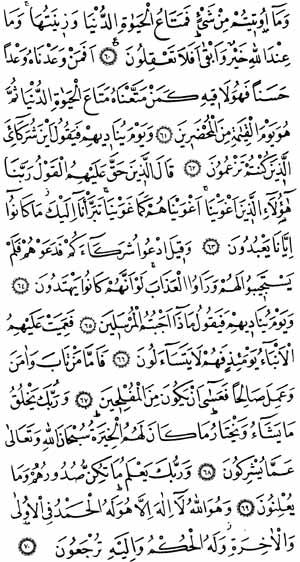 وَمَا أُوتِيتُمْ مِنْ شَيْءٍ فَمَتَاعُ الْحَيٰوةِ الدُّنْيَا وَزِينَتُهَا ۚ وَمَا
عِنْدَ اللّٰهِ خَيْرٌ وَأَبْقٰى ۚ أَفَلَا تَعْقِلُونَ ﴿٦٠﴾ أَفَمَنْ وَعَدْنَاهُ وَعْدًا
حَسَنًا فَهُوَ لَاقِيهِ كَمَنْ مَتَّعْنَاهُ مَتَاعَ الْحَيٰوةِ الدُّنْيَا ثُمَّ
هُوَ يَوْمَ الْقِيٰمَةِ مِنَ الْمُحْضَرِينَ ﴿٦١﴾ وَيَوْمَ يُنَادِيهِمْ فَيَقُولُ أَيْنَ شُرَكَائِيَ
الَّذِينَ كُنْتُمْ تَزْعُمُونَ ﴿٦٢﴾ قَالَ الَّذِينَ حَقَّ عَلَيْهِمُ الْقَوْلُ رَبَّنَا
هٰؤُلَاءِ الَّذِينَ أَغْوَيْنَا ۚ أَغْوَيْنَاهُمْ كَمَا غَوَيْنَا ۚ تَبَرَّأْنَا إِلَيْكَ ۖ مَا كَانُوا
إِيَّانَا يَعْبُدُونَ ﴿٦٣﴾ وَقِيلَ ادْعُوا شُرَكَاءَكُمْ فَدَعَوْهُمْ فَلَمْ
يَسْتَجِيبُوا لَهُمْ وَرَأَوُا الْعَذَابَ ۚ لَوْ أَنَّهُمْ كَانُوا يَهْتَدُونَ ﴿٦٤﴾
وَيَوْمَ يُنَادِيهِمْ فَيَقُولُ مَاذَا أَجَبْتُمُ الْمُرْسَلِينَ ﴿٦٥﴾ فَعَمِيَتْ عَلَيْهِمُ
الْأَنْبَاءُ يَوْمَئِذٍ فَهُمْ لَا يَتَسَاءَلُونَ ﴿٦٦﴾ فَأَمَّا مَنْ تَابَ وَاٰمَنَ
وَعَمِلَ صَالِحًا فَعَسٰى أَنْ يَكُونَ مِنَ الْمُفْلِحِينَ ﴿٦٧﴾ وَرَبُّكَ يَخْلُقُ
مَا يَشَاءُ وَيَخْتَارُ ۗ مَا كَانَ لَهُمُ الْخِيَرَةُ ۚ سُبْحَانَ اللّٰهِ وَتَعَالٰى
عَمَّا يُشْرِكُونَ ﴿٦٨﴾ وَرَبُّكَ يَعْلَمُ مَا تُكِنُّ صُدُورُهُمْ وَمَا
يُعْلِنُونَ ﴿٦٩﴾ وَهُوَ اللّٰهُ لَا إِلٰهَ إِلَّا هُوَ ۖ لَهُ الْحَمْدُ فِي الْأُولٰى
وَالْاٰخِرَةِ ۖ وَلَهُ الْحُكْمُ وَإِلَيْهِ تُرْجَعُونَ ﴿٧٠﴾